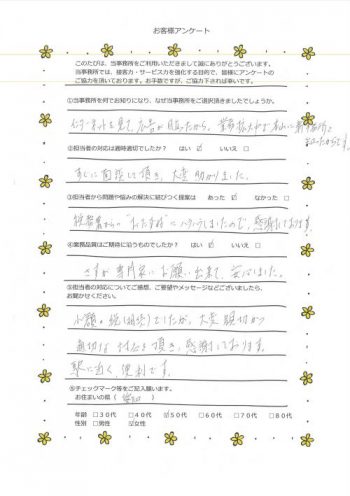 お客様アンケート
このたびは、当事務所をご利用いただきまして誠にありがとうございます。
当事務所では、接客力・サービス力を強化する目的で、皆様にアンケートの
ご協力を頂いております。お手数ですが、ご協力下されば幸いです。
①当事務所を何でお知りになり、なぜ当事務所をご選択頂きましたでしょうか。
インターネットを見て、広告が目立ったから。
②担当者の対応は適時適切でしたか？ はい ☑ いいえ □
すぐに面談して頂き、大変助かりました。
③担当者から問題や悩みの解決に結びつく提案は あった ☑ なかった □
税務署からの"おたずね"にハラハラしましたので、感謝しております
④業務品質はご期待に沿うものでしたか？ はい ☑ いいえ □
さすが専門家にお願い出来て、安心しました。
⑤担当者の対応についてご感想、ご要望やメッセージなどございましたら、
お聞かせください。
小額の相続でしたが、大変親切かつ
適切な対応を頂き、感謝しております。
駅に近く、便利です。
⑤チェックマーク等をご記入願います。
お住まいの県（ 愛知 ）
年齢 □３０代 □４０代 ☑５０代 □６０代 □７０代 □８０代
性別 □男性 ☑女性